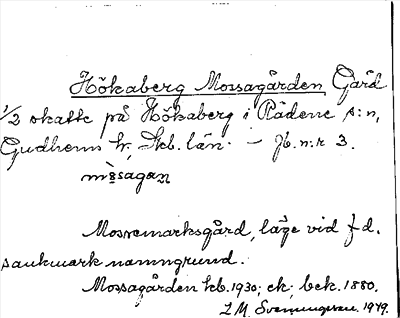 Hökaberg Mossagården Gård
1/2 skatte på Hökaberg i Rådene s:n,
Gudhems h., Skb. län. – Jb. n:r 3.
måsagan
Mossemarksgård, läge vid f.d.
sankmark namngrund.
Mossagården kb. 1930; ek; bek. 1880.
I. M. Svenungsson. 1949.